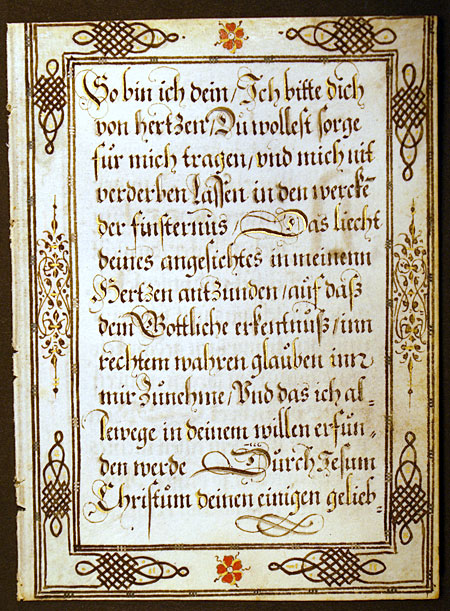 So bin ich dein / Ich bitte dich
von hertzen / Du wollest sorge
für mich tragen / vnd mich nit
verderben lassen in den werckẽ
der finsternus / Das liecht
deines angesichtes in meinenn
Hertzen antzunden / auf daß
dem Gottliche erkentnuß / inn
rechtem wahren glauben inn
mir zunehme / Vnd das ich al-
lewege in deinem willen erfun-
den werde Durch Jesum
Christum deinen einigen gelieb-